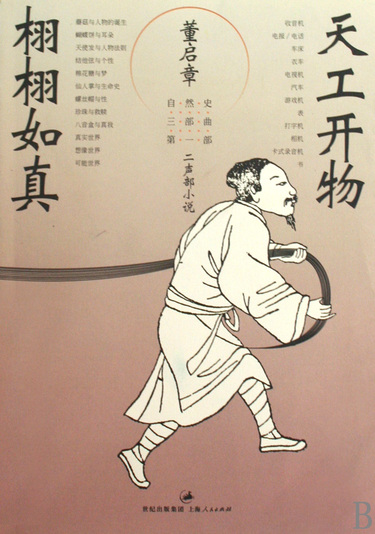 天工开物
栩栩如真
董启章
自然史
三部曲
第一部
二声部小说
收音机
电报 / 电话
车床
衣车
电视机
汽车
游戏机
表
打字机
相机
卡式录音机
书
蘑菇与人物的诞生
蝴蝶饼与耳朵
天使发与人物法则
结他弦与个性
棉花糖与梦
仙人掌与生命史
螺丝帽与性
珍珠与救赎
八音盒与真我
真实世界
想像世界
可能世界
世纪出版集团 上海人民出版社
B